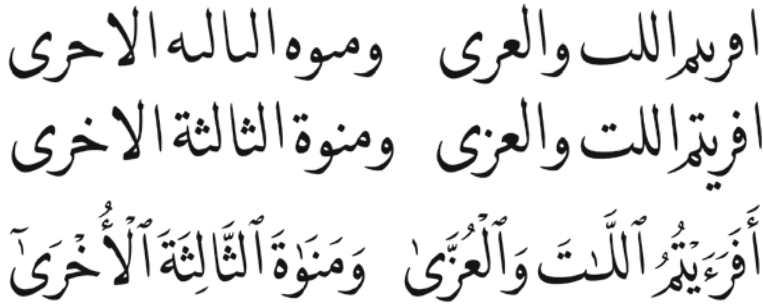 افرٮٮم اللٮ والعرى ومٮوه الٮالٮه الاحرى
افريتم اللت والعزى ومنوة الثالثة الاخرى
أَفَرَءَيْتُمُ ٱللَّـٰتَ وَٱلْعُزَّىٰ وَمَنَوٰةَ ٱلثَّالِثَةَ ٱلْأُخْرَىٰٓ